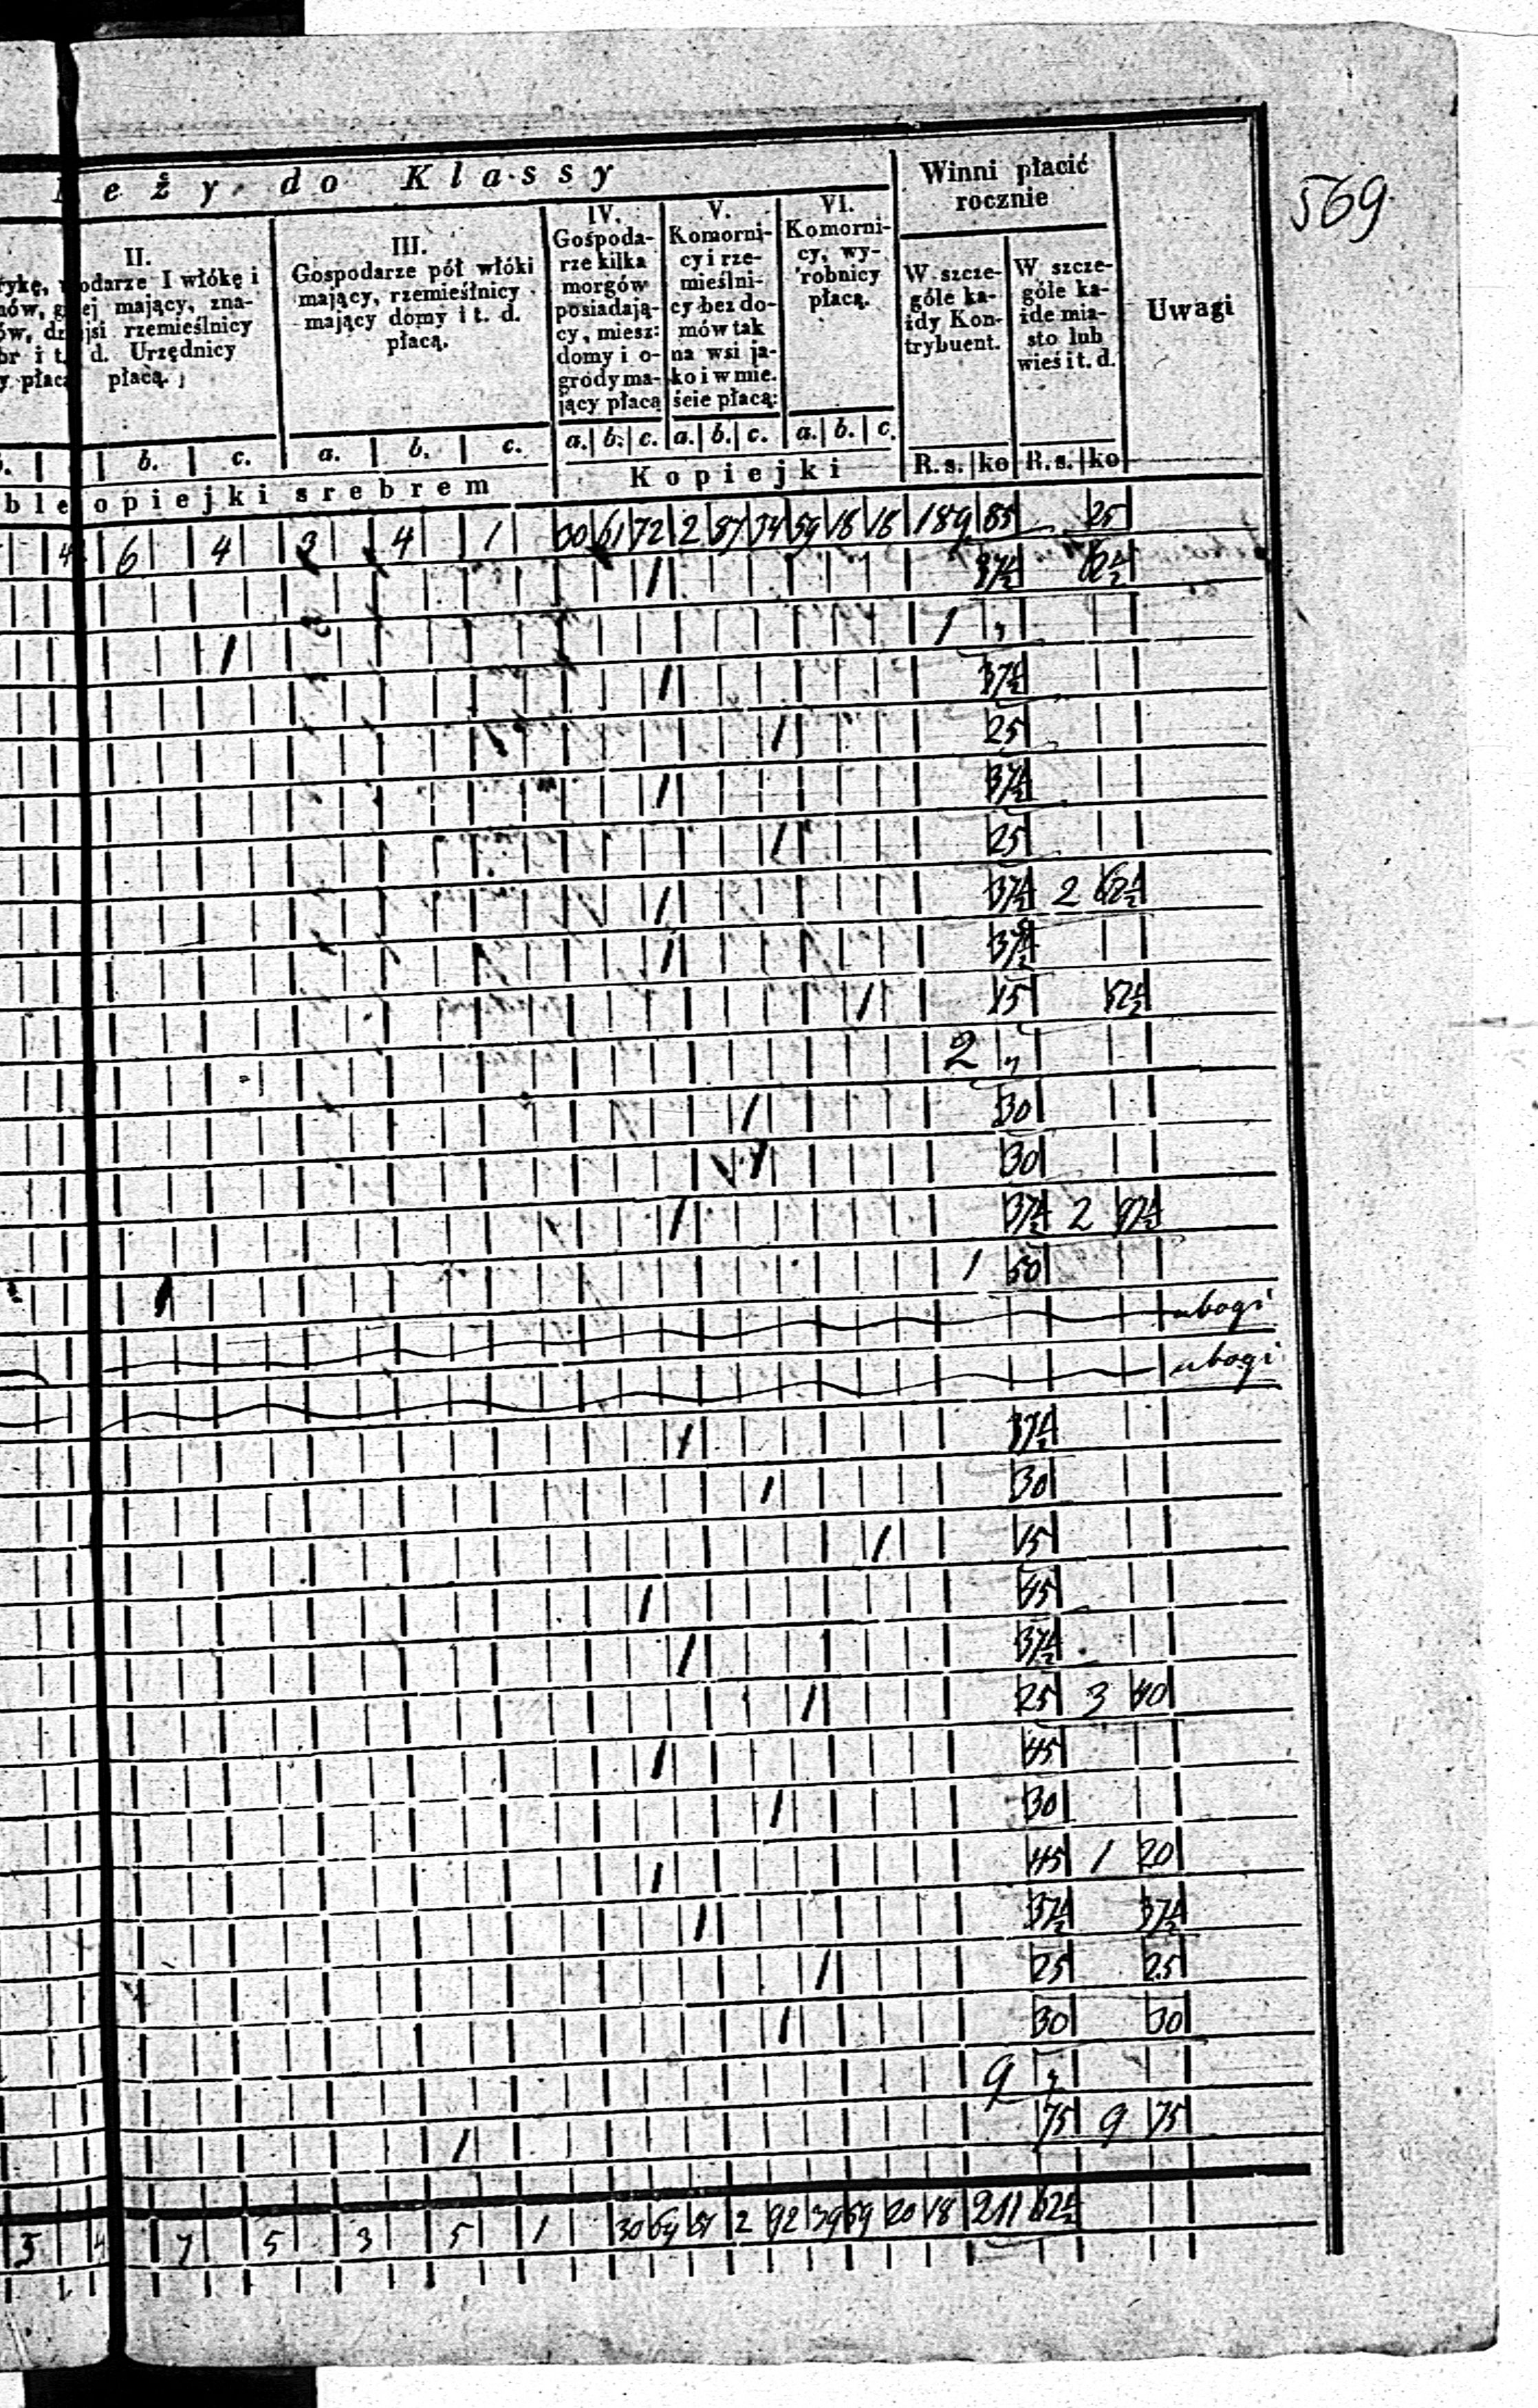 569
eży do Klassy
Winni płacić rocznie
Uwagi
II.
odarze I włókę i
ej mający, zna-
jsi rzemieślnicy
d. Urzędnicy
płacą.
III.
Gospodarze pół włóki
mający, rzemieślnicy
mający domy i t. d.
płacą.
IV.
Gospoda-
rze kilka
morgów
posiadają-
cy, miesz:
domy i o-
grody ma-
jący płacą
V.
Komorni-
cy i rze-
mieślni-
cy bez do-
mów tak
na wsi ja-
ko i w mie.
ście płacą:
VI.
Komorni-
cy, wy-
robnicy
płacą.
W szcze-
góle ka-
żdy Kon-
trybuent.
W szcze-
góle ka-
żde mia-
sto lub
wieś i t. d.
b. c. a. b. c. a. b. c. a. b. c. a. b. c. R. s. ko R. s. ko
ble opiejki srebrem Kopiejki
4 6 4 3 4 1 30 61 72 2 87 34 59 18 16 189 85 25
1 37½ 62½
1 1 "
1 37½
1 25
1 37½
1 25
1 37½ 2 62½
1 37½
1 15 52½
2 "
1 30
1 30
1 37½ 2 97½
1 1 50
ubogi
ubogi
1 37½
1 30
1 15
1 45
1 37½
1 25 3 40
1 45
1 30
1 45 1 20
1 37½ 37½
1 25 25
1 30 30
9 "
1 75 9 75
5 4 7 5 3 5 1 30 64 2 92 39 69 20 18 211 62½